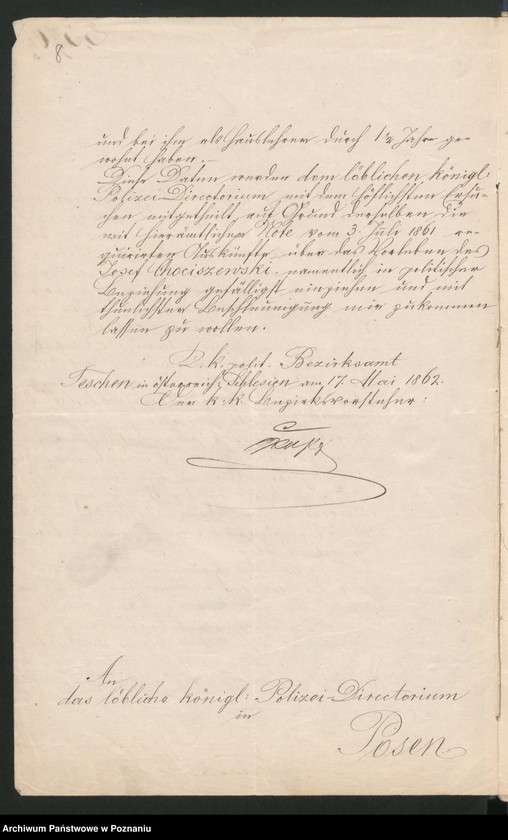 8
und bei ihm als Hauslehrer durch 1½ Jahr ge-
wohnt haben. –
Diese Daten werden dem löblichen königl:
Polizei-Directorium mit dem höflichsten Ersu-
chen mitgetheilt auf Grund derselben die
mit hierämtlicher Note vom 3. Juli 1861 re-
quirirten Auskünfte über das Vorleben des
Josef Chociszewski, namentlich in politischer
Beziehung gefälligst einziehen und mit
thunlichster Beschleunigung mir zukommen
lassen zu wollen.
K. k. polit. Bezirksamt
Teschen in österreich: Schlesien am 17. Mai 1862.
Der k: k. Bezirksvorsteher:
An
das löbliche königl: Polizei-Directorium
in
Posen
Archiwum Państwowe w Poznaniu